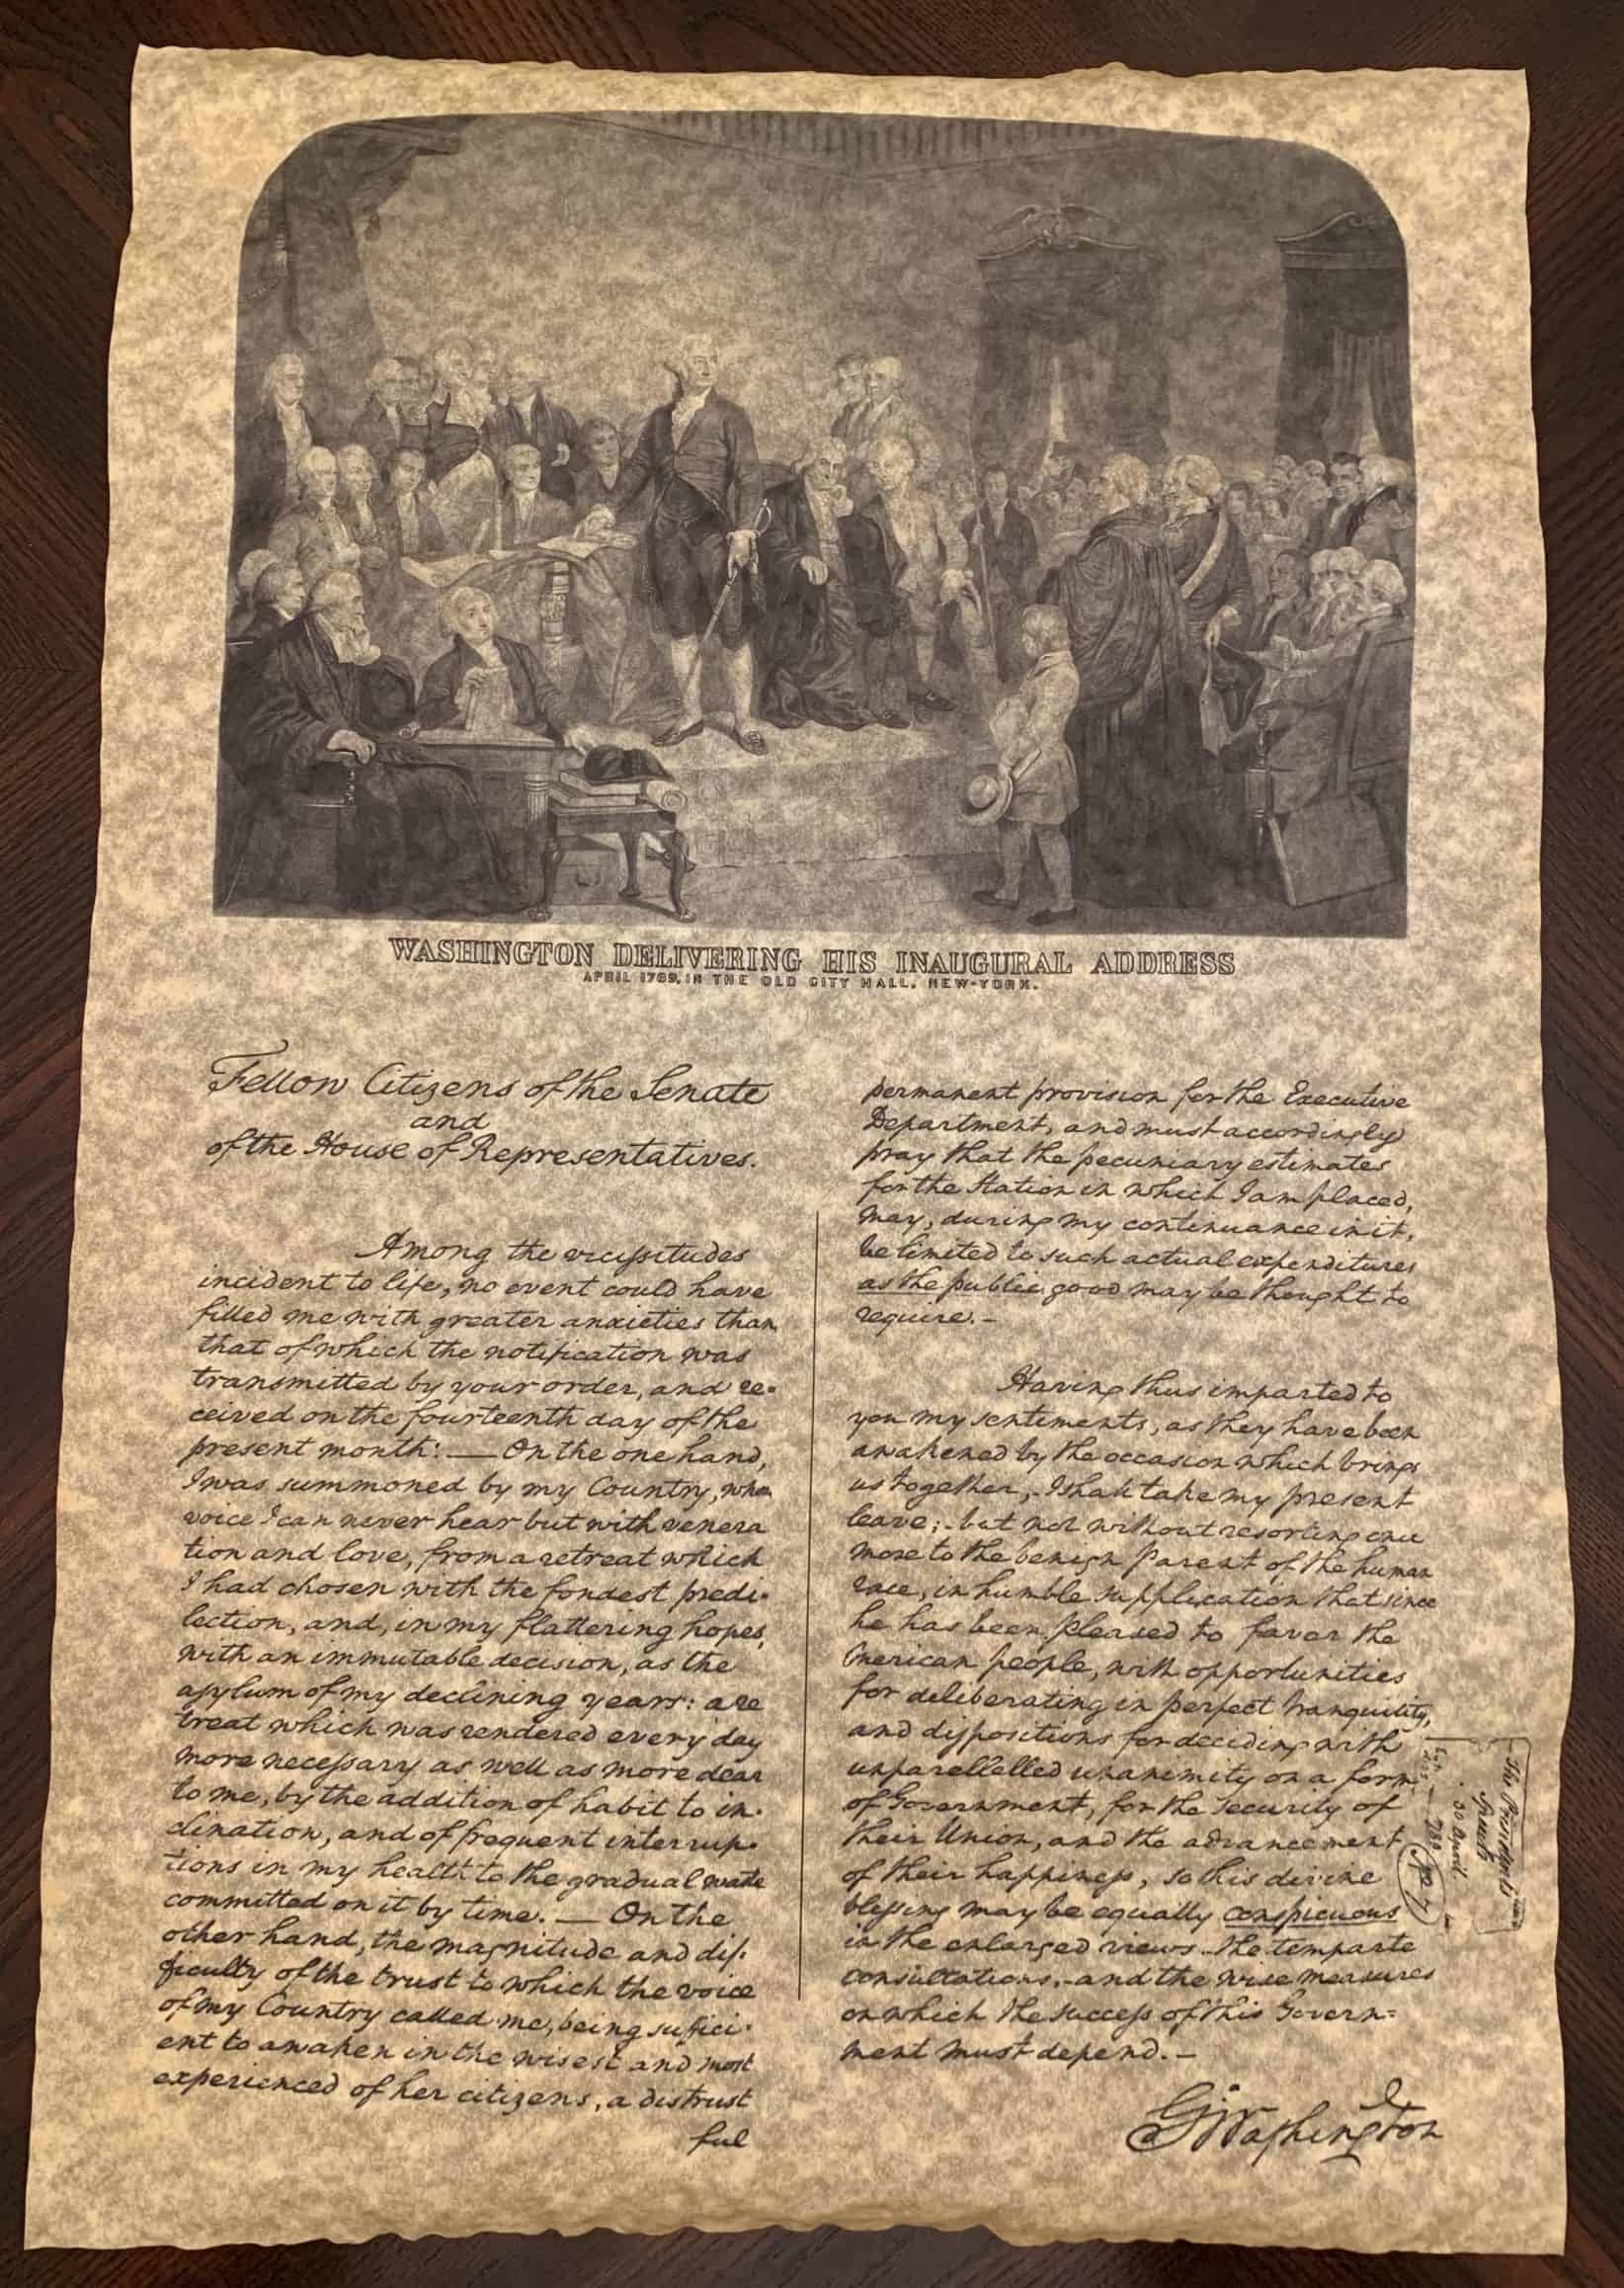 WASHINGTON DELIVERING HIS INAUGURAL ADDRESS
APRIL 1789, IN THE OLD CITY HALL, NEW-YORK.
Fellow Citizens of the Senate
and
of the House of Representatives.
Among the vicissitudes
incident to life, no event could have
filled me with greater anxieties than
that of which the notification was
transmitted by your order, and re-
ceived on the fourteenth day of the
present month: — On the one hand,
I was summoned by my Country, whose
voice I can never hear but with venera
tion and love, from a retreat which
I had chosen with the fondest predi-
lection, and, in my flattering hopes,
with an immutable decision, as the
asylum of my declining years: a re
treat which was rendered every day
more necessary as well as more dear
to me, by the addition of habit to in-
clination, and of frequent interrup-
tions in my health to the gradual waste
committed on it by time. — On the
other hand, the magnitude and dif-
ficulty of the trust to which the voice
of my Country called me, being suffici-
ent to awaken in the wisest and most
experienced of her citizens, a distrust
ful
permanent provision for the Executive
Department, and must accordingly
pray that the pecuniary estimates
for the Station in which I am placed,
may, during my continuance in it,
be limited to such actual expenditures
as the public good may be thought to
require. -
Having thus imparted to
you my sentiments, as they have been
awakened by the occasion which brings
us together, - I shall take my present
leave; - but not without resorting once
more to the benign Parent of the human
race, in humble supplication that since
he has been pleased to favor the
American people, with opportunities
for deliberating in perfect tranquility,
and dispositions for deciding with
unparellelled unanimity on a form
of Government, for the Security of
their Union, and the advancement
of their happiness, so his divine
blessing may be equally conspicuous
in the enlarged views - the temperate
consultations, - and the wise measures
on which the success of this Govern-
ment must depend. -
G Washington
The President's
Speech
30 April